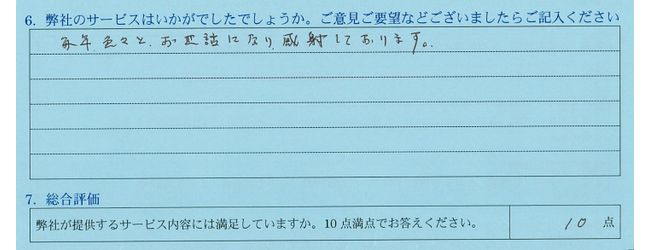 6. 弊社のサービスはいかがでしたでしょうか。ご意見ご要望などございましたらご記入ください
毎年色々と、お世話になり感謝しております。
7. 総合評価
弊社が提供するサービス内容には満足していますか。10 点満点でお答えください。 10 点